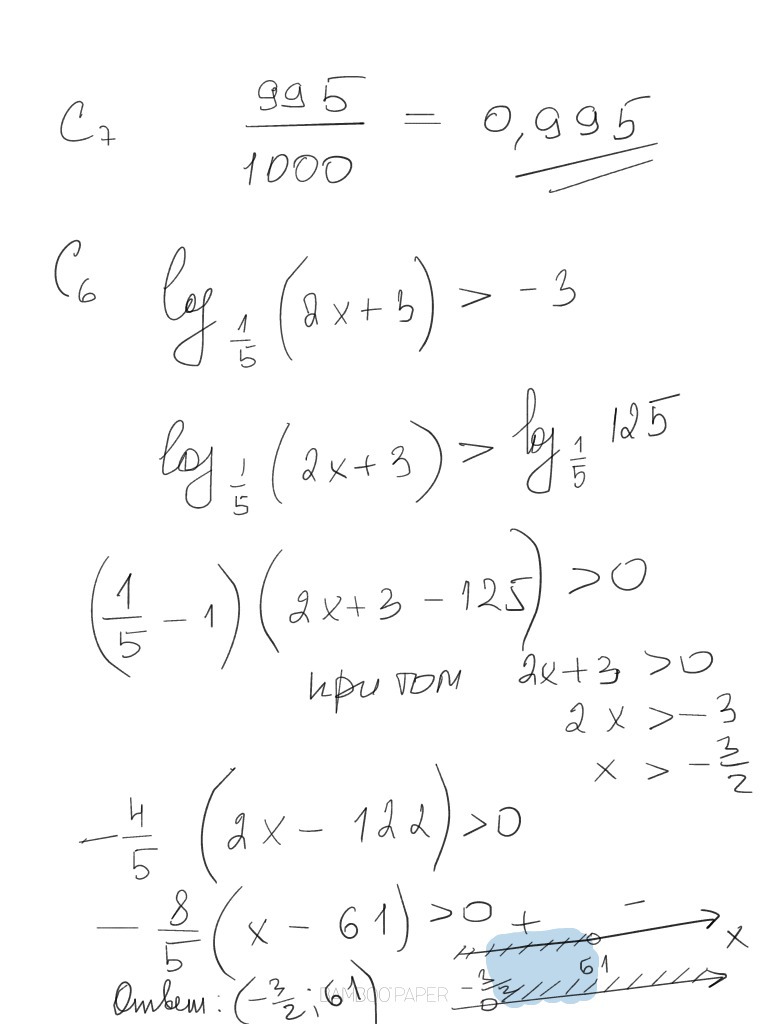 C₇ 995/1000 = 0,995
C₆ log_{1/5} (2x+3) > -3
log_{1/5} (2x+3) > log_{1/5} 125
(1/5 - 1) (2x+3 - 125) > 0
при том 2x+3 > 0
2x > -3
x > -3/2
-4/5 (2x - 122) > 0
-8/5 (x - 61) > 0
+ -
x
61
-3/2
Ответ: (-3/2; 61)
BAMBOO PAPER